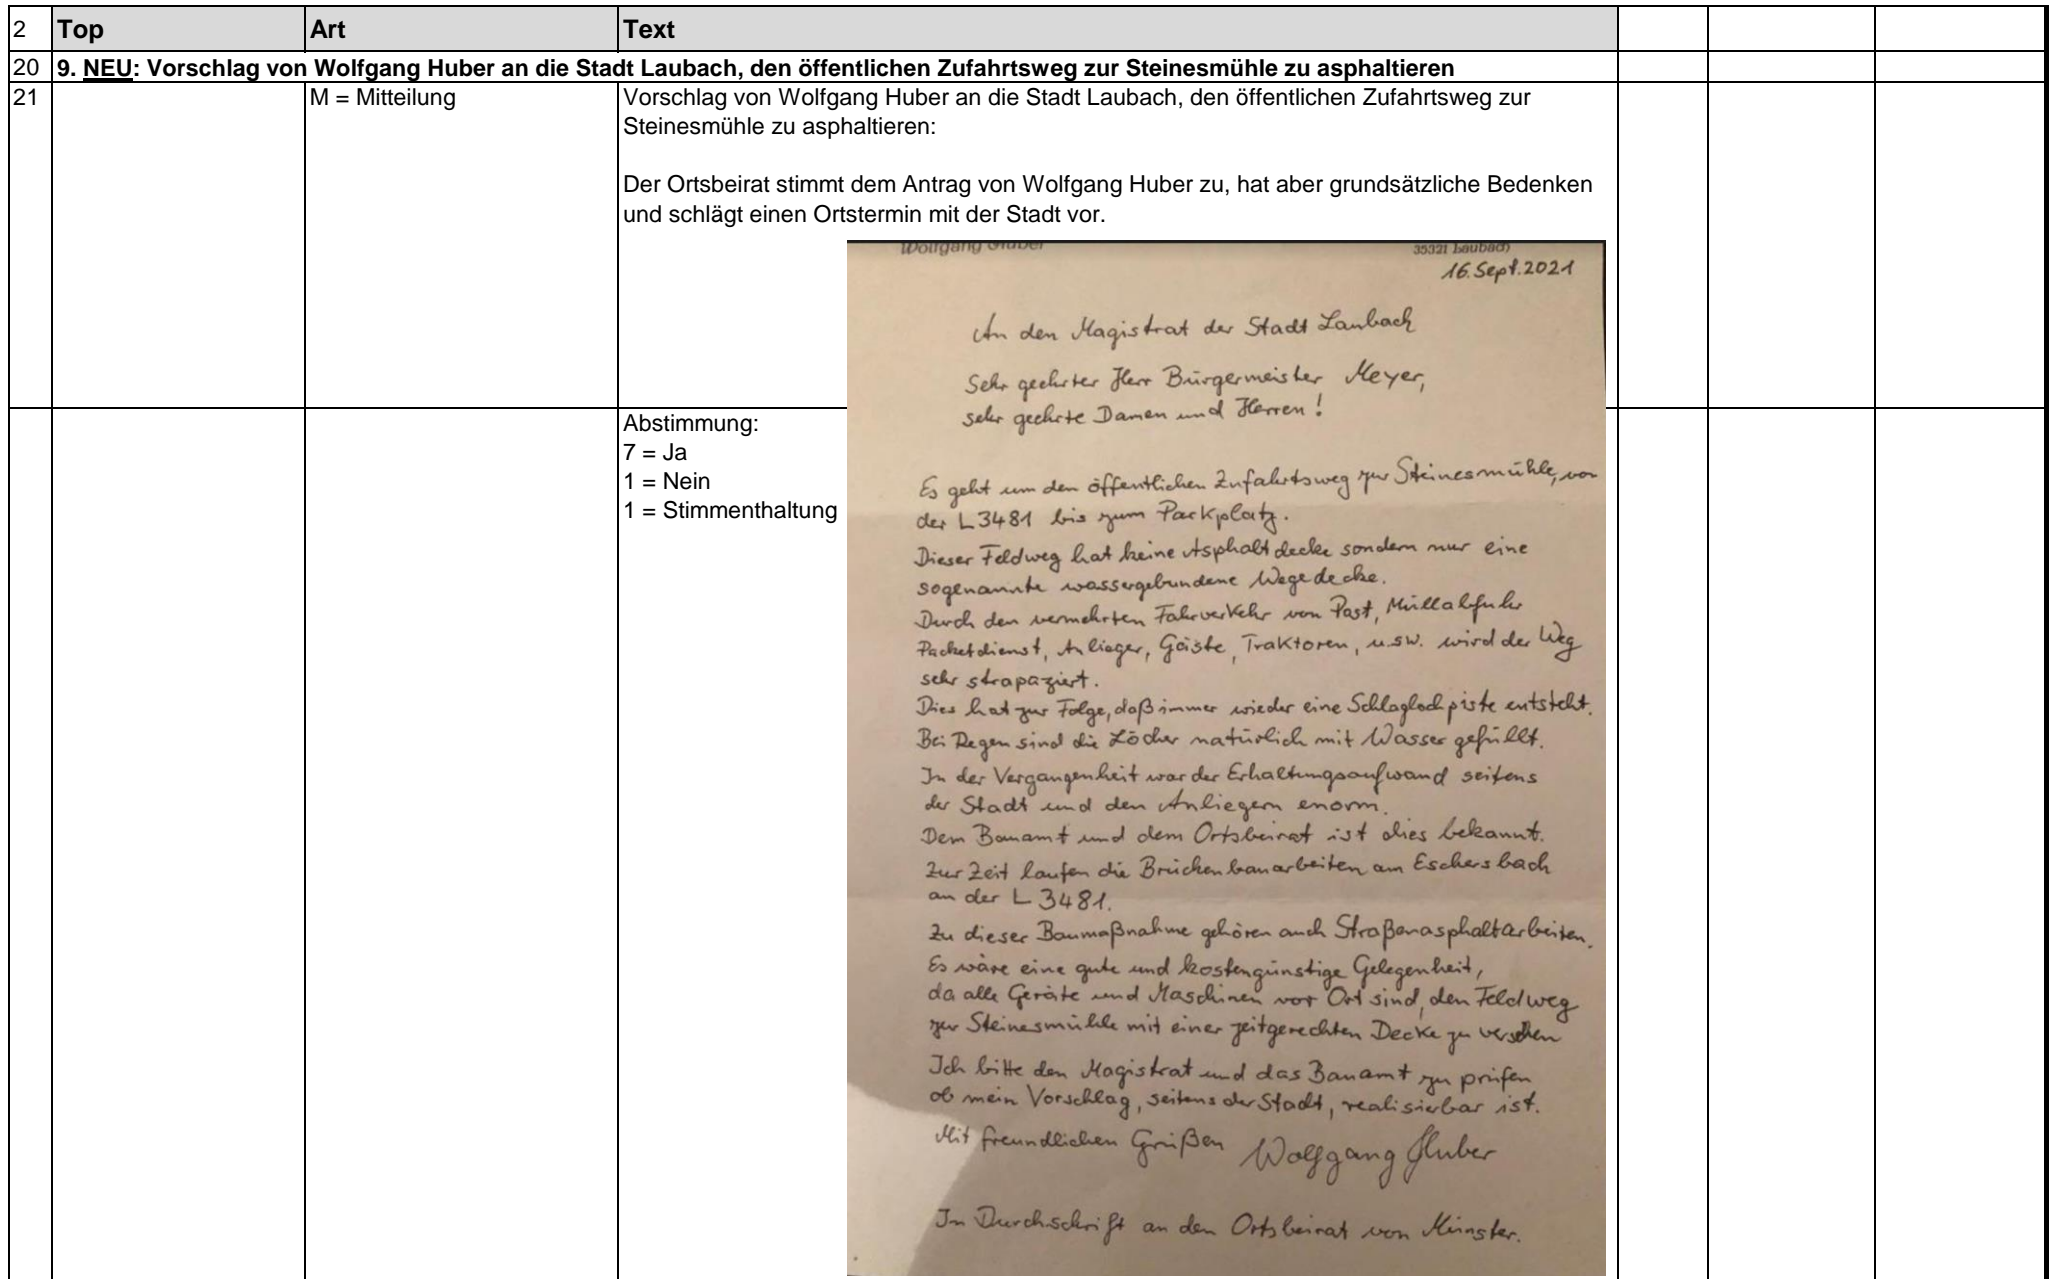 2 Top Art Text
20 9. NEU: Vorschlag von Wolfgang Huber an die Stadt Laubach, den öffentlichen Zufahrtsweg zur Steinesmühle zu asphaltieren
21 M = Mitteilung Vorschlag von Wolfgang Huber an die Stadt Laubach, den öffentlichen Zufahrtsweg zur
Steinesmühle zu asphaltieren:
Der Ortsbeirat stimmt dem Antrag von Wolfgang Huber zu, hat aber grundsätzliche Bedenken
und schlägt einen Ortstermin mit der Stadt vor.
Abstimmung:
7 = Ja
1 = Nein
1 = Stimmenthaltung
Wolfgang Huber 35321 Laubach
16. Sept. 2021
An den Magistrat der Stadt Laubach
Sehr geehrter Herr Bürgermeister Meyer,
sehr geehrte Damen und Herren!
Es geht um den öffentlichen Zufahrtsweg zur Steinesmühle, von
der L 3481 bis zum Parkplatz.
Dieser Feldweg hat keine Asphaltdecke sondern nur eine
sogenannte wassergebundene Wegedecke.
Durch den vermehrten Fahrverkehr von Post, Müllabfuhr
Packetdienst, Anlieger, Gäste, Traktoren, u.s.w. wird der Weg
sehr strapaziert.
Dies hat zur Folge, daß immer wieder eine Schlaglochpiste entsteht.
Bei Regen sind die Löcher natürlich mit Wasser gefüllt.
In der Vergangenheit war der Erhaltungsaufwand seitens
der Stadt und den Anliegern enorm.
Dem Bauamt und dem Ortsbeirat ist dies bekannt.
Zur Zeit laufen die Brückenbauarbeiten am Eschersbach
an der L 3481.
Zu dieser Baumaßnahme gehören auch Straßenasphaltarbeiten.
Es wäre eine gute und kostengünstige Gelegenheit,
da alle Geräte und Maschinen vor Ort sind, den Feldweg
zur Steinesmühle mit einer zeitgerechten Decke zu versehen
Ich bitte den Magistrat und das Bauamt zu prüfen
ob mein Vorschlag, seitens der Stadt, realisierbar ist.
Mit freundlichen Grüßen Wolfgang Huber
In Durchschrift an den Ortsbeirat von Münster.